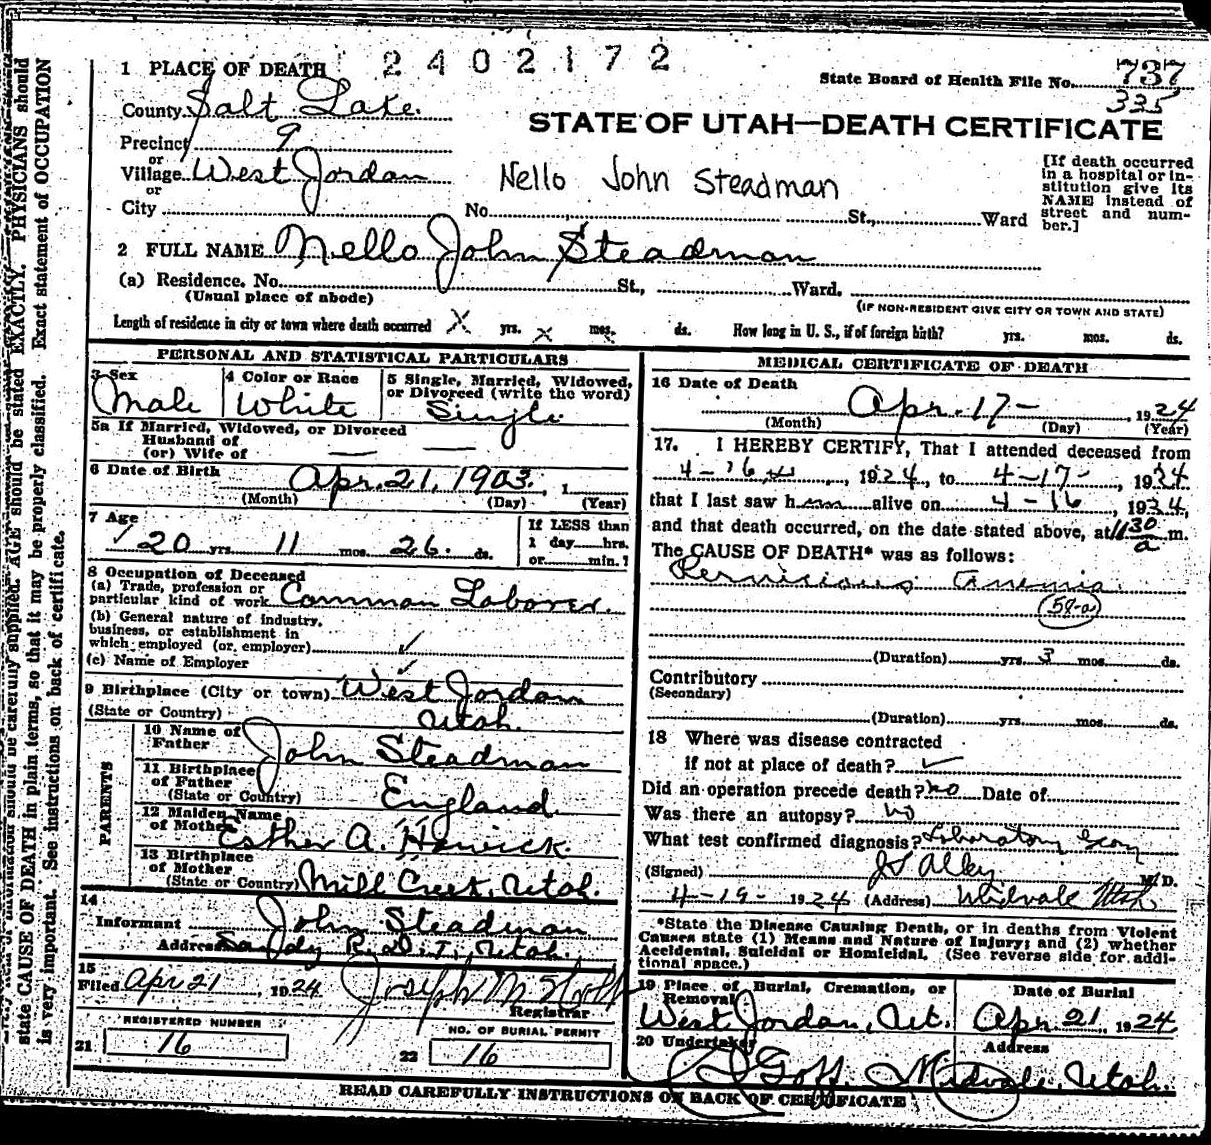 2402172
1 PLACE OF DEATH
State Board of Health File No. 737
335
County Salt Lake.
STATE OF UTAH—DEATH CERTIFICATE
Precinct 9
or
Village West Jordan
or
Nello John Steadman
[If death occurred in a hospital or in-
stitution give its
NAME instead of
street and num-
ber.]
City No. St., Ward
2 FULL NAME Nello John Steadman
(a) Residence. No. St., Ward.
(Usual place of abode)
(IF NON-RESIDENT GIVE CITY OR TOWN AND STATE)
Length of residence in city or town where death occurred X yrs. X mos. ds. How long in U. S., if of foreign birth? yrs. mos. ds.
PERSONAL AND STATISTICAL PARTICULARS
3 Sex
Male
4 Color or Race
White
5 Single, Married, Widowed,
or Divorced (write the word)
Single
5a If Married, Widowed, or Divorced
Husband of
(or) Wife of
6 Date of Birth Apr. 21, 1903. , 1
(Month) (Day) (Year)
7 Age
20 yrs 11 mos. 26. ds.
If LESS than
1 day hrs.
or min.?
8 Occupation of Deceased
(a) Trade, profession or
particular kind of work Common Laborer.
(b) General nature of industry,
business, or establishment in
which employed (or employer) ✓
(c) Name of Employer ✓
9 Birthplace (City or town) West Jordan
(State or Country) Utah.
PARENTS
10 Name of
Father John Steadman
11 Birthplace
of Father
(State or Country) England
12 Maiden Name
of Mother Esther A.
13 Birthplace
of Mother
(State or Country) Mill Creek, Utah.
14
Informant John Steadman
Address Sandy R. D. 1, Utah.
15
Filed Apr 21, 1924 Joseph M
Registrar
REGISTERED NUMBER
21 16
NO. OF BURIAL PERMIT
22 16
MEDICAL CERTIFICATE OF DEATH
16 Date of Death
Apr. 17 - , 1924
(Month) (Day) (Year)
17. I HEREBY CERTIFY, That I attended deceased from
4-16, 1924, to 4-17-, 1924
that I last saw him alive on 4-16, 1924,
and that death occurred, on the date stated above, at 1130 a m.
The CAUSE OF DEATH* was as follows:
Pernicious Anemia.
(58-a)
(Duration) yrs. 3 mos. ds.
Contributory
(Secondary)
(Duration) yrs. mos. ds.
18 Where was disease contracted
if not at place of death? ✓
Did an operation precede death? no Date of
Was there an autopsy? no
What test confirmed diagnosis? Laboratory
(Signed) Alley M. D.
4-19-1924 (Address) Midvale Utah
*State the Disease Causing Death, or in deaths from Violent
Causes state (1) Means and Nature of Injury; and (2) whether
Accidental, Suicidal or Homicidal. (See reverse side for addi-
tional space.)
19 Place of Burial, Cremation, or
Removal
West Jordan, Ut.
Date of Burial
Apr. 21, 1924
20 Undertaker
Goff.
Address
Midvale, Utah.
READ CAREFULLY INSTRUCTIONS ON BACK OF CERTIFICATE
should be carefully supplied. AGE should be stated EXACTLY. PHYSICIANS should
state CAUSE OF DEATH in plain terms, so that it may be properly classified. Exact statement of OCCUPATION
is very important. See instructions on back of certificate.